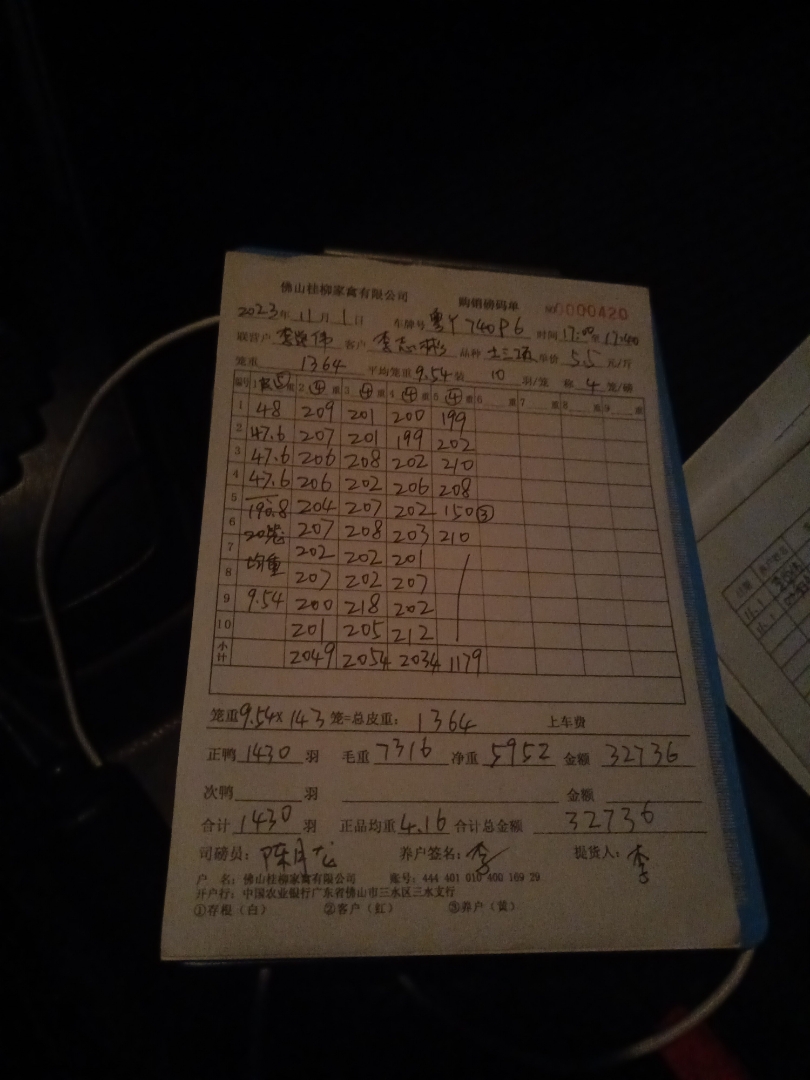 佛山桂柳家禽有限公司 购销磅码单 №0000420
2023年 11月 1日 车牌号 粤Y740P6 时间 17:00至 17:40
联营户 李 伟 客户 李志彬 品种 单价 5.5 元/斤
笼重 1364 平均笼重 9.54 装 10 羽/笼 称 4 笼/磅
编号 1 重 2 ④ 重 3 ④ 重 4 ④ 重 5 ④ 重 6 重 7 重 8 重 9 重
1 48 209 201 200 199
2 47.6 207 201 199 202
3 47.6 206 208 202 210
4 47.6 206 202 206 208
5 190.8 204 207 202 150③
6 20笼 207 208 203 210
7 均重 202 202 201
8 207 202 207
9 9.54 200 218 202
10 201 205 212
小计 2049 2054 2034 1179
笼重 9.54 × 143 笼=总皮重: 1364 上车费
正鸭 1430 羽 毛重 7316 净重 5952 金额 32736
次鸭 羽 金额
合计 1430 羽 正品均重 4.16 合计总金额 32736
司磅员: 陈月龙 养户签名: 李 提货人: 李
户 名: 佛山桂柳家禽有限公司 账号: 444 401 010 400 169 29
开户行: 中国农业银行广东省佛山市三水区三水支行
①存根(白) ②客户(红) ③养户(黄)